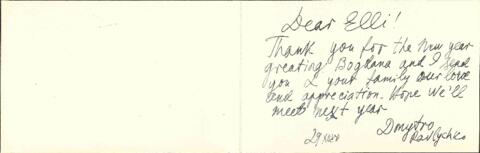 Dear Elli!
Thank you for the New year
greating Bogdana and I send
you & your family our love
and appreciation. Hope We'll
meet next year
Dmytro
Pavlychko
29